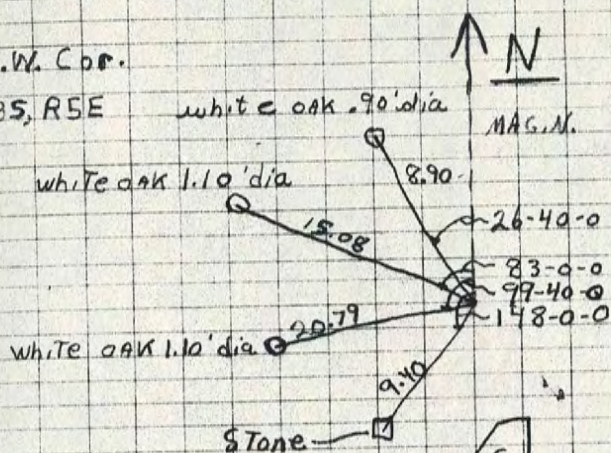 .W. Cor.
3S, R5E
white OAK .90' dia
N
MAG.N.
white OAK 1.10' dia
8.90
15.08
26-40-0
83-0-0
99-40-0
148-0-0
20.79
white OAK 1.10' dia
9.40
STone